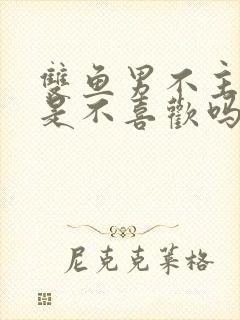 雙鱼男不主
是不喜歡吗
尼克克莱格